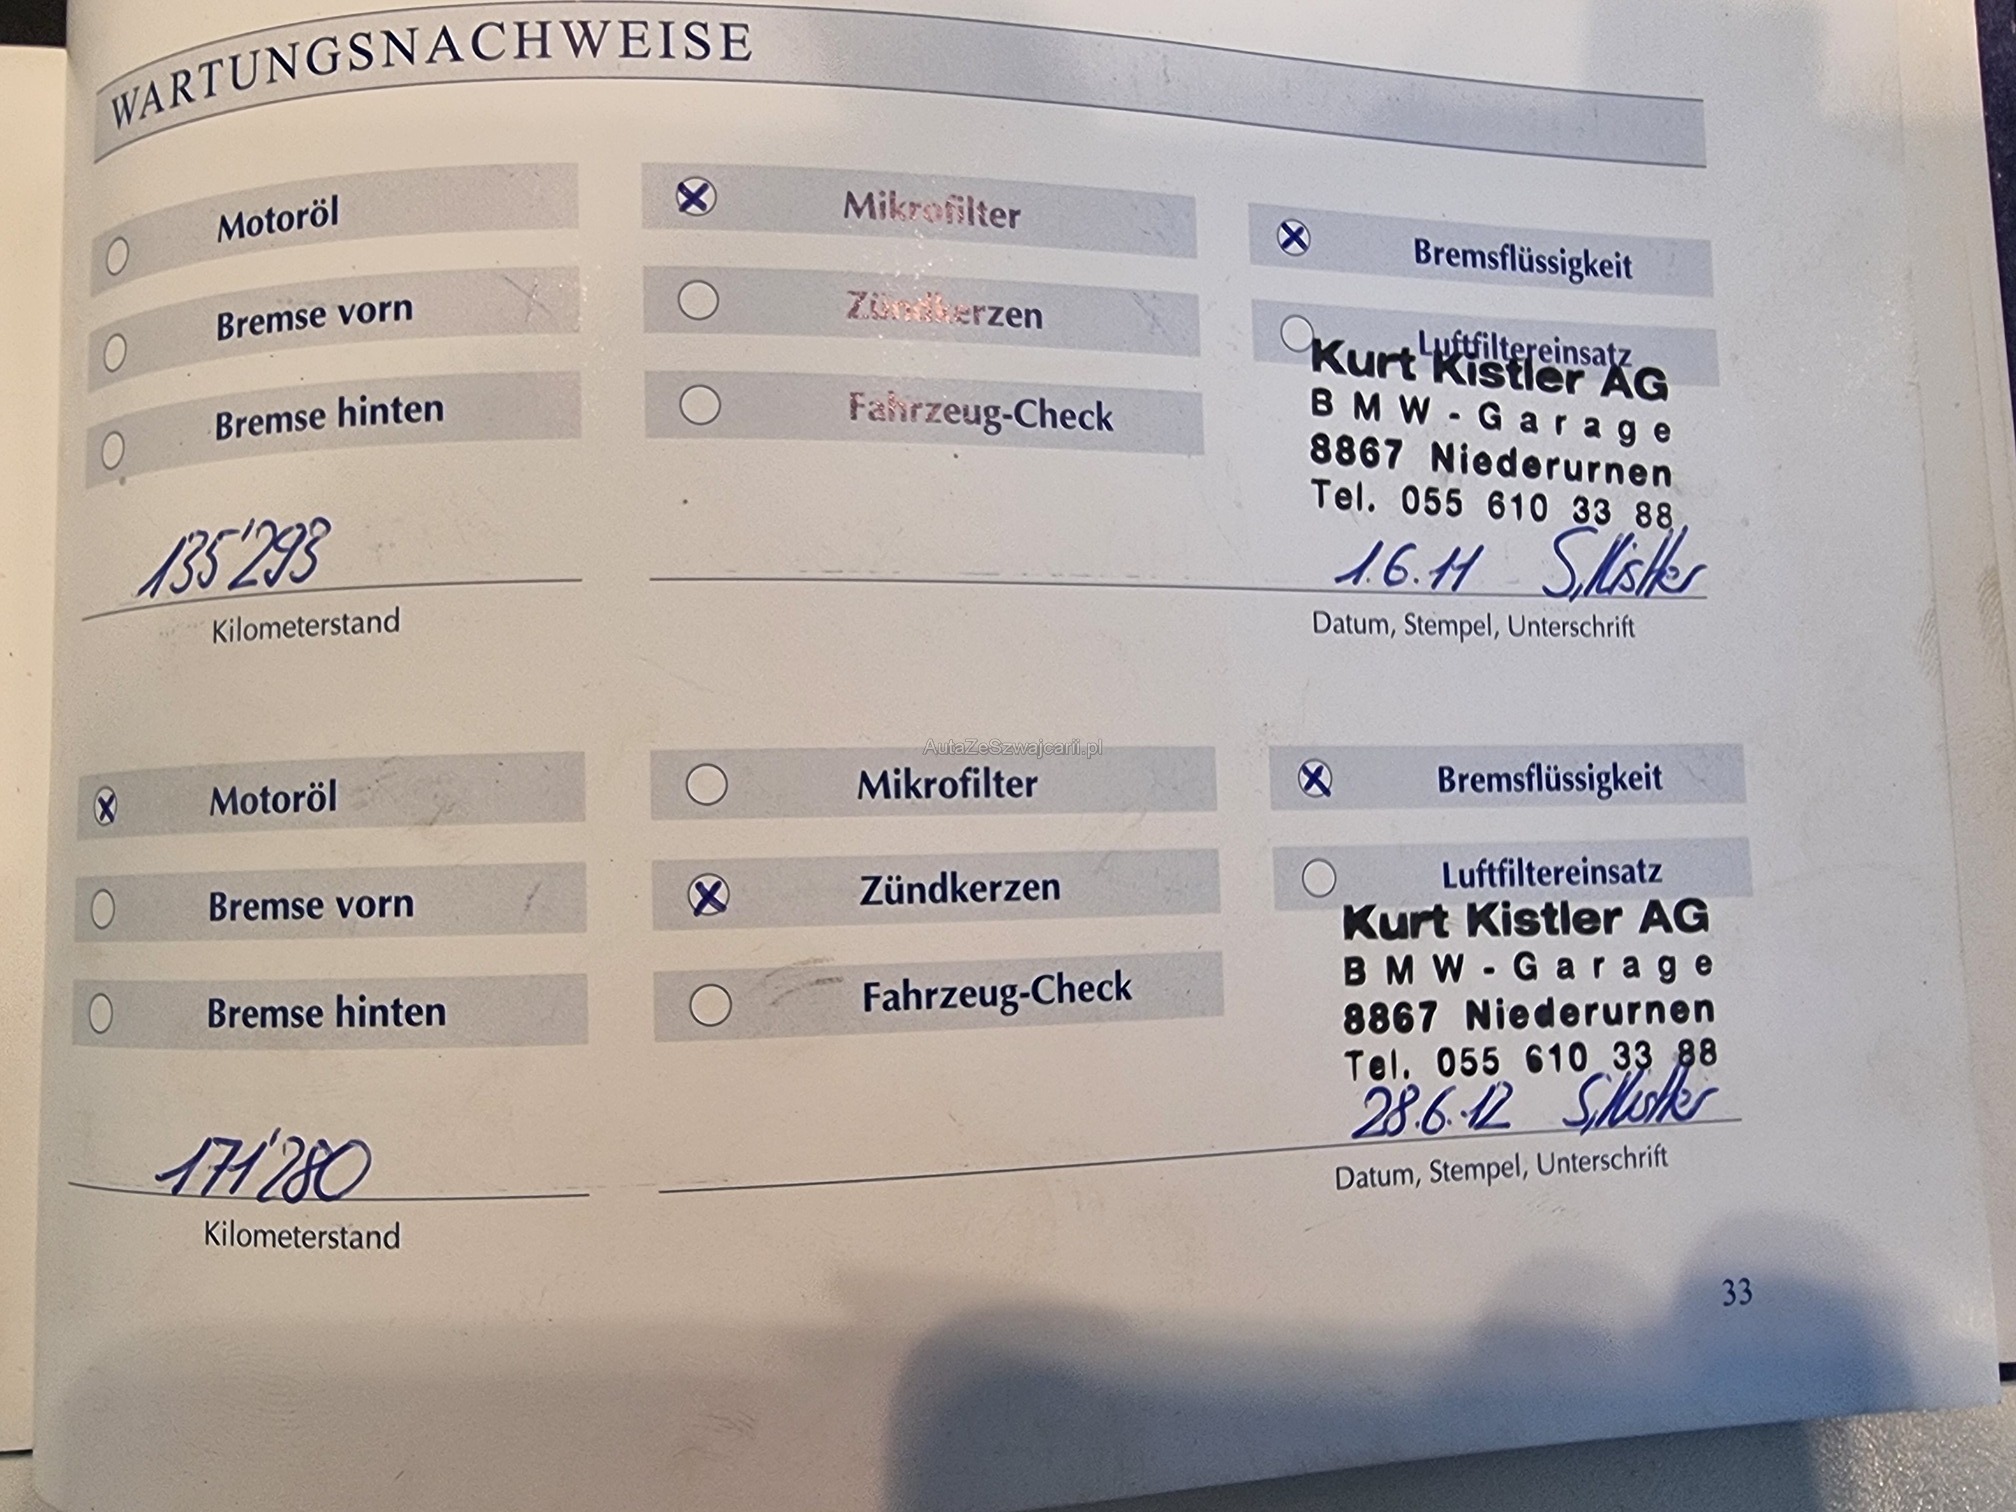 WARTUNGSNACHWEISE
Motoröl
Mikrofilter
Bremsflüssigkeit
Bremse vorn
Zündkerzen
Luftfiltereinsatz
Bremse hinten
Fahrzeug-Check
Kurt Kistler AG
BMW-Garage
8867 Niederurnen
Tel. 055 610 33 88
135'293
1.6.11 S. Kistler
Kilometerstand
Datum, Stempel, Unterschrift
AutaZeSzwajcarii.pl
Motoröl
Mikrofilter
Bremsflüssigkeit
Bremse vorn
Zündkerzen
Luftfiltereinsatz
Bremse hinten
Fahrzeug-Check
Kurt Kistler AG
BMW-Garage
8867 Niederurnen
Tel. 055 610 33 88
171'280
28.6.12 S. Kistler
Kilometerstand
Datum, Stempel, Unterschrift
33